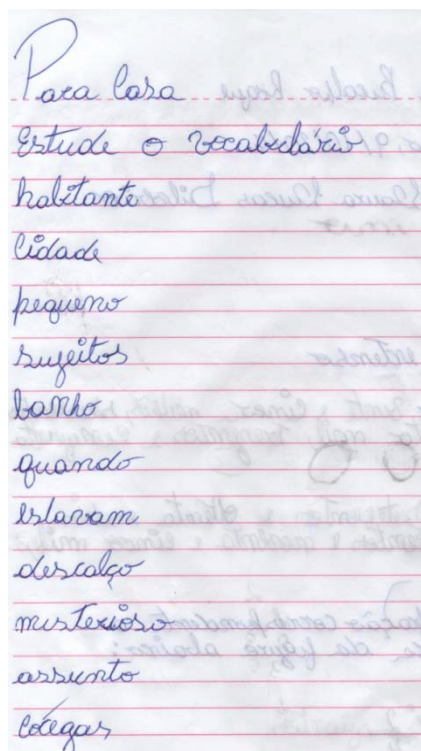 Para Casa
Estude o vocabulário
habitante
Cidade
pequeno
sujeitos
banho
quando
estavam
descalço
misterioso
assunto
colegas